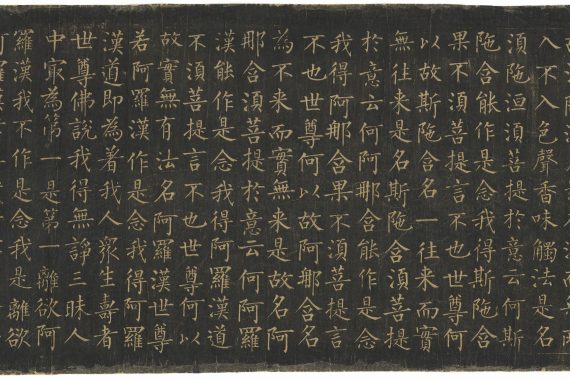 入不入色聲香味觸法是名
須陁洹須菩提於意云何斯
陁含能作是念我得斯陁含
果不須菩提言不也世尊何
以故斯陁含名一往來而實
無往來是名斯陁含須菩提
於意云何阿那含能作是念
我得阿那含果不須菩提言
不也世尊何以故阿那含名
為不來而實無來是故名阿
那含須菩提於意云何阿羅
漢能作是念我得阿羅漢道
不須菩提言不也世尊何以
故實無有法名阿羅漢世尊
若阿羅漢作是念我得阿羅
漢道即為著我人眾生壽者
世尊佛說我得無諍三昧人
中最為第一是第一離欲阿
羅漢我不作是念我是離欲